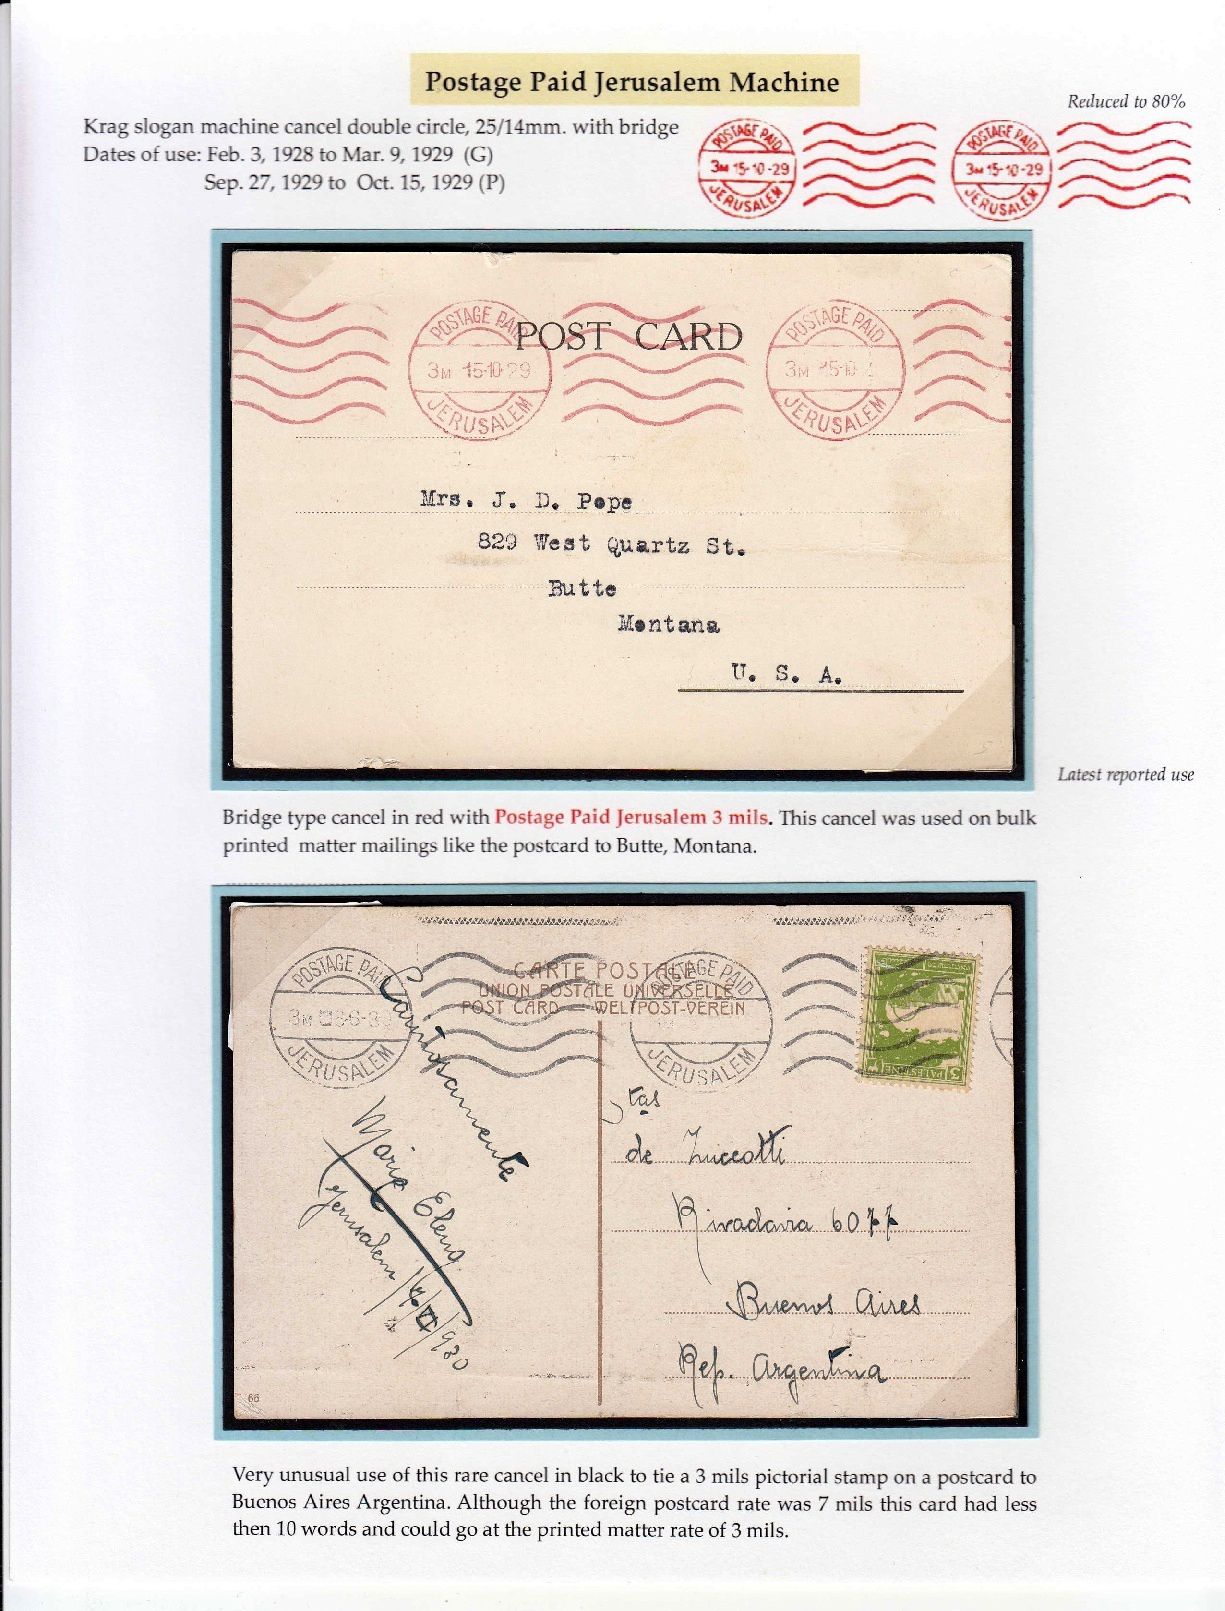 Postage Paid Jerusalem Machine
Reduced to 80%
Krag slogan machine cancel double circle, 25/14mm. with bridge
Dates of use: Feb. 3, 1928 to Mar. 9, 1929 (G)
Sep. 27, 1929 to Oct. 15, 1929 (P)
POSTAGE PAID
3M 15-10-29
JERUSALEM
POSTAGE PAID
3M 15-10-29
JERUSALEM
POSTAGE PAID
3M 15-10 29
JERUSALEM
POST CARD
POSTAGE PAID
3M 15-10
JERUSALEM
Mrs. J. D. Pope
829 West Quartz St.
Butte
Montana
U. S. A.
Latest reported use
Bridge type cancel in red with Postage Paid Jerusalem 3 mils. This cancel was used on bulk
printed matter mailings like the postcard to Butte, Montana.
POSTAGE PAID
3M
JERUSALEM
CARTE POSTALE
UNION POSTALE UNIVERSELLE
POST CARD — WELTPOST-VEREIN
POSTAGE PAID
JERUSALEM
PALESTINE
3
Mario Elena
Jerusalem
930
tas
de Zuccotti
Rivadavia 6077
Buenos Aires
Rep. Argentina
66
Very unusual use of this rare cancel in black to tie a 3 mils pictorial stamp on a postcard to
Buenos Aires Argentina. Although the foreign postcard rate was 7 mils this card had less
then 10 words and could go at the printed matter rate of 3 mils.